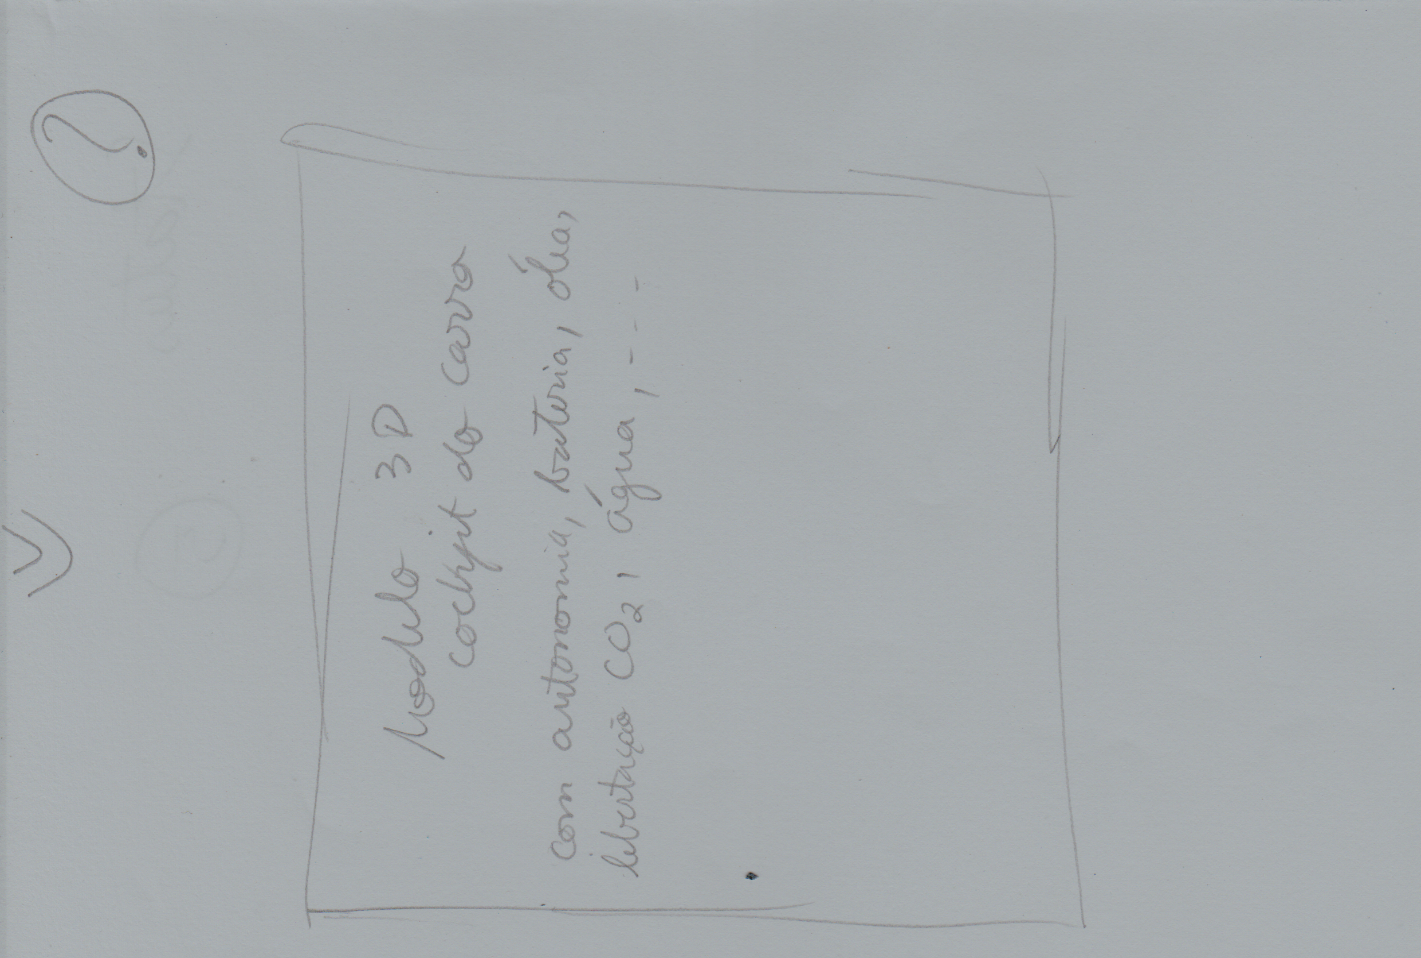 ?
Modelo 3D
cockpit do carro
com autonomia, bateria, óleo,
libertação CO2, água, ----